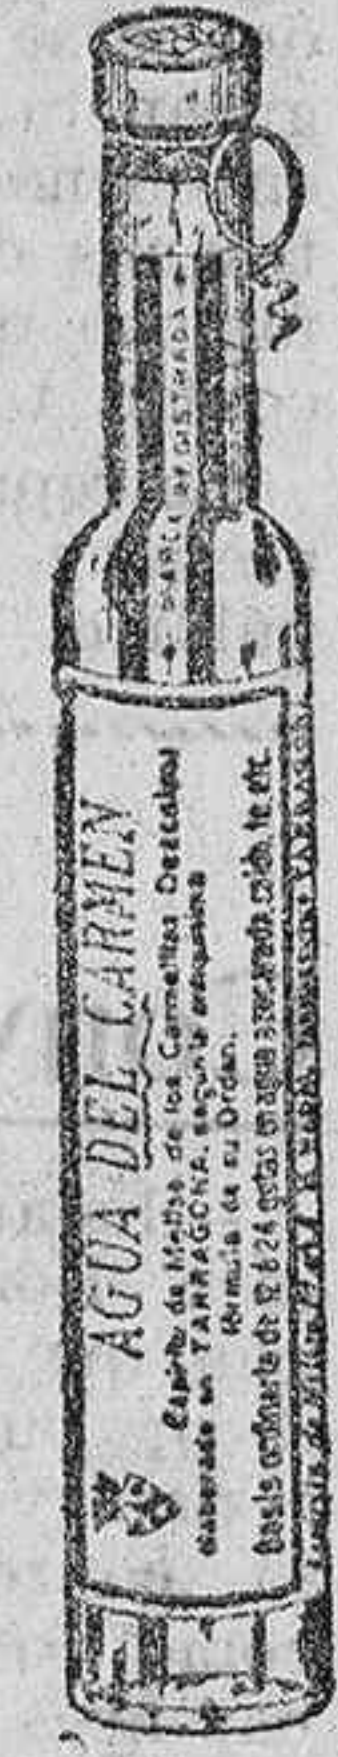 MARCA REGISTRADA
AGUA DEL CARMEN
Espíritu de Melisa de los Carmelitas Descalzos
elaborado en TARRAGONA, según la antiquísima
fórmula de su Orden.
Dosis ordinaria de 12 á 24 gotas en agua azucarada, caída, te etc.